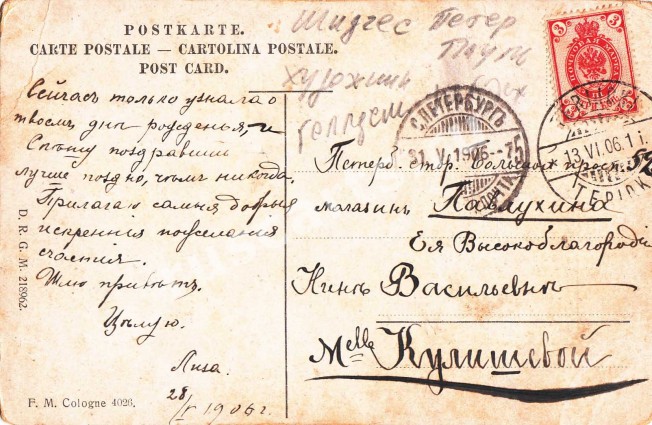 POSTKARTE.
CARTE POSTALE — CARTOLINA POSTALE.
POST CARD.
Шидгес Петер
Пауль
художник
Сейчасъ только узнала о
твоемъ дне рожденья, и
Спѣшу поздравить
лучше поздно, чѣмъ никогда.
Прилагаю самыя добрыя
искреннія пожелания
счастия.
Шлю привѣтъ.
Цѣлую.
Лиза.
28/V 1906 г.
D. R. G. M. 218962.
F. M. Cologne 4026.
3 3
ПОЧТОВАЯ МАРКА
С.ПЕТЕРБУРГЪ
31. V. 1906.-75
13 VI.06.
Петерб. стор. Большой просп. 52
магазинъ Павлухина
Ея Высокоблагородію
Нинѣ Васильевнѣ
Melle Кулишевой